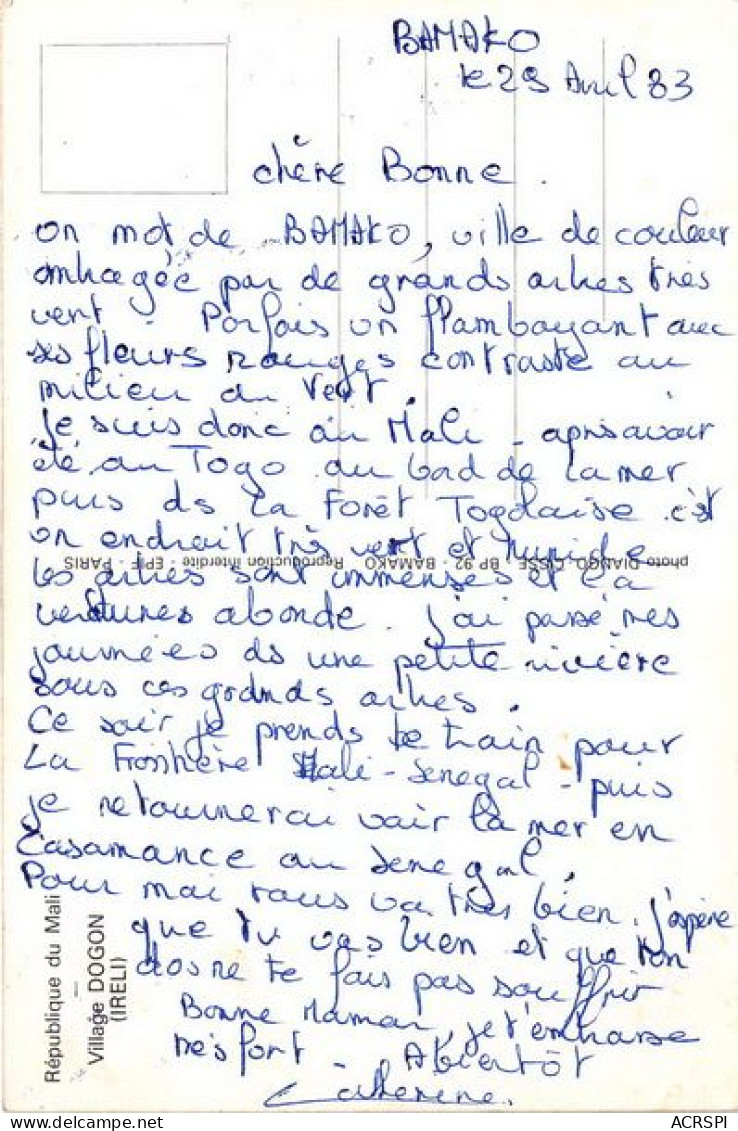 BAMAKO
le 29 Avril 83
chère Bonne.
un mot de BAMAKO, ville de couleur
ombragée par de grands arbres très
vert. Parfois un flamboyant avec
ses fleurs rouges contraste au
milieu du vert.
Je suis donc au Mali - après avoir
été au Togo au bord de la mer
puis ds la Forêt Togolaise. c'est
un endroit très vert et humide
les arbres sont immenses et la
verdure abonde. J'ai passé mes
journées ds une petite rivière
sous ces grands arbres.
Ce soir je prends le train pour
La Frontière Mali-Sénégal - puis
je retournerai voir la mer en
Casamance au Sénégal.
Pour moi tous va très bien. j'espère
que tu vas bien et que ton
dos ne te fais pas souffrir
Bonne Maman, je t'embrasse
très fort. A bientôt
Catherine.
photo DIANGO CISSE - BP 92 - BAMAKO Reproduction interdite - EPIF - PARIS
République du Mali
—
Village DOGON
(IRELI)
ACRSPI